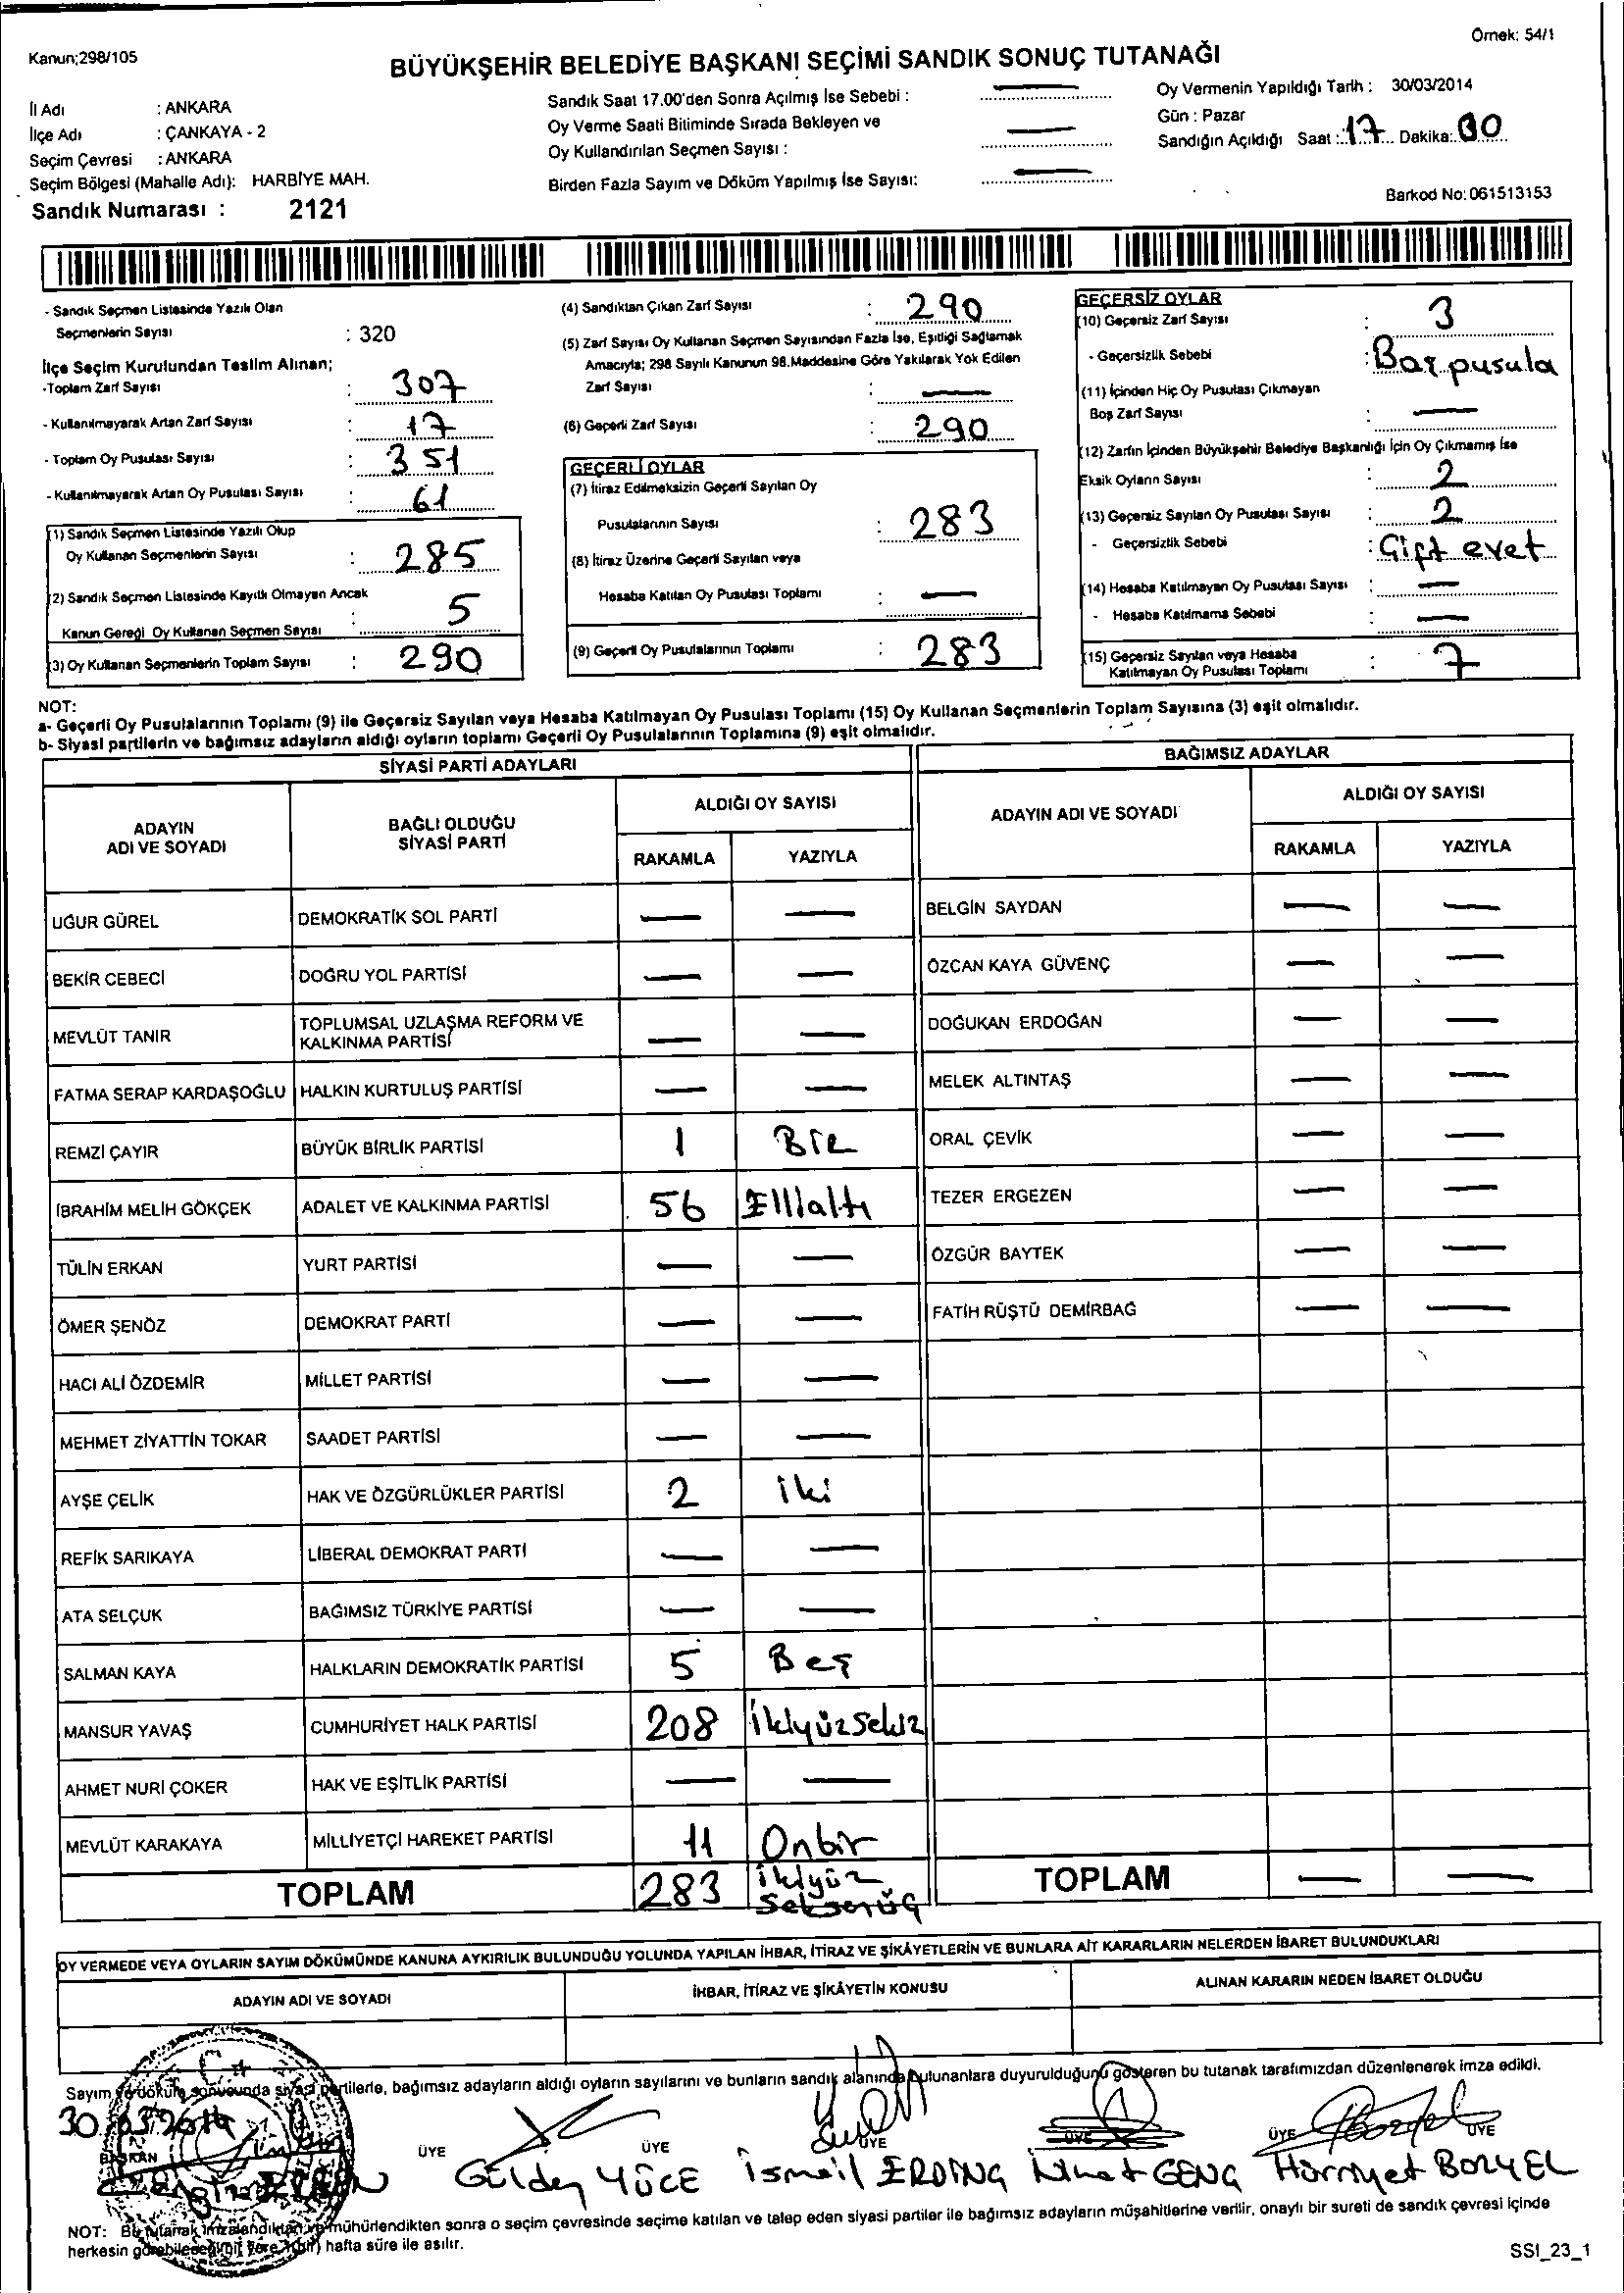 Kanun;298/105
Örnek: 54/1
BÜYÜKŞEHİR BELEDİYE BAŞKANI SEÇİMİ SANDIK SONUÇ TUTANAĞI
İl Adı : ANKARA
İlçe Adı : ÇANKAYA - 2
Seçim Çevresi : ANKARA
Seçim Bölgesi (Mahalle Adı): HARBİYE MAH.
Sandık Numarası : 2121
Sandık Saat 17.00'den Sonra Açılmış İse Sebebi : —
Oy Verme Saati Bitiminde Sırada Bekleyen ve
Oy Kullandırılan Seçmen Sayısı : —
Birden Fazla Sayım ve Döküm Yapılmış İse Sayısı: —
Oy Vermenin Yapıldığı Tarih : 30/03/2014
Gün : Pazar
Sandığın Açıldığı Saat : 17 Dakika: 00
Barkod No: 061513153
- Sandık Seçmen Listesinde Yazılı Olan
Seçmenlerin Sayısı : 320
İlçe Seçim Kurulundan Teslim Alınan;
-Toplam Zarf Sayısı : 307
- Kullanılmayarak Artan Zarf Sayısı : 17
- Toplam Oy Pusulası Sayısı : 351
- Kullanılmayarak Artan Oy Pusulası Sayısı : 61
(1) Sandık Seçmen Listesinde Yazılı Olup
Oy Kullanan Seçmenlerin Sayısı : 285
(2) Sandık Seçmen Listesinde Kayıtlı Olmayan Ancak
Kanun Gereği Oy Kullanan Seçmen Sayısı : 5
(3) Oy Kullanan Seçmenlerin Toplam Sayısı : 290
(4) Sandıktan Çıkan Zarf Sayısı : 290
(5) Zarf Sayısı Oy Kullanan Seçmen Sayısından Fazla İse, Eşitliği Sağlamak
Amacıyla; 298 Sayılı Kanunun 98.Maddesine Göre Yakılarak Yok Edilen
Zarf Sayısı : —
(6) Geçerli Zarf Sayısı : 290
GEÇERLİ OYLAR
(7) İtiraz Edilmeksizin Geçerli Sayılan Oy
Pusulalarının Sayısı : 283
(8) İtiraz Üzerine Geçerli Sayılan veya
Hesaba Katılan Oy Pusulası Toplamı : —
(9) Geçerli Oy Pusulalarının Toplamı : 283
GEÇERSİZ OYLAR
(10) Geçersiz Zarf Sayısı : 3
- Geçersizlik Sebebi : Boş pusula
(11) İçinden Hiç Oy Pusulası Çıkmayan
Boş Zarf Sayısı : —
(12) Zarfın İçinden Büyükşehir Belediye Başkanlığı İçin Oy Çıkmamış İse
Eksik Oyların Sayısı : 2
(13) Geçersiz Sayılan Oy Pusulası Sayısı : 2
- Geçersizlik Sebebi : Çift evet
(14) Hesaba Katılmayan Oy Pusulası Sayısı : —
- Hesaba Katılmama Sebebi : —
(15) Geçersiz Sayılan veya Hesaba
Katılmayan Oy Pusulası Toplamı : 7
NOT:
a- Geçerli Oy Pusulalarının Toplamı (9) ile Geçersiz Sayılan veya Hesaba Katılmayan Oy Pusulası Toplamı (15) Oy Kullanan Seçmenlerin Toplam Sayısına (3) eşit olmalıdır.
b- Siyasi partilerin ve bağımsız adayların aldığı oyların toplamı Geçerli Oy Pusulalarının Toplamına (9) eşit olmalıdır.
SİYASİ PARTİ ADAYLARI
ADAYIN
ADI VE SOYADI
BAĞLI OLDUĞU
SİYASİ PARTİ
ALDIĞI OY SAYISI
RAKAMLA YAZIYLA
UĞUR GÜREL DEMOKRATİK SOL PARTİ — —
BEKİR CEBECİ DOĞRU YOL PARTİSİ — —
MEVLÜT TANIR TOPLUMSAL UZLAŞMA REFORM VE
KALKINMA PARTİSİ — —
FATMA SERAP KARDAŞOĞLU HALKIN KURTULUŞ PARTİSİ — —
REMZİ ÇAYIR BÜYÜK BİRLİK PARTİSİ 1 Bir
İBRAHİM MELİH GÖKÇEK ADALET VE KALKINMA PARTİSİ 56 Ellialtı
TÜLİN ERKAN YURT PARTİSİ — —
ÖMER ŞENÖZ DEMOKRAT PARTİ — —
HACI ALİ ÖZDEMİR MİLLET PARTİSİ — —
MEHMET ZİYATTİN TOKAR SAADET PARTİSİ — —
AYŞE ÇELİK HAK VE ÖZGÜRLÜKLER PARTİSİ 2 iki
REFİK SARIKAYA LİBERAL DEMOKRAT PARTİ — —
ATA SELÇUK BAĞIMSIZ TÜRKİYE PARTİSİ — —
SALMAN KAYA HALKLARIN DEMOKRATİK PARTİSİ 5 Beş
MANSUR YAVAŞ CUMHURİYET HALK PARTİSİ 208 İkiyüzsekiz
AHMET NURİ ÇOKER HAK VE EŞİTLİK PARTİSİ — —
MEVLÜT KARAKAYA MİLLİYETÇİ HAREKET PARTİSİ 11 Onbir
TOPLAM 283 ikiyüz
Seksenüç
BAĞIMSIZ ADAYLAR
ADAYIN ADI VE SOYADI
ALDIĞI OY SAYISI
RAKAMLA YAZIYLA
BELGİN SAYDAN — —
ÖZCAN KAYA GÜVENÇ — —
DOĞUKAN ERDOĞAN — —
MELEK ALTINTAŞ — —
ORAL ÇEVİK — —
TEZER ERGEZEN — —
ÖZGÜR BAYTEK — —
FATİH RÜŞTÜ DEMİRBAĞ — —
TOPLAM — —
OY VERMEDE VEYA OYLARIN SAYIM DÖKÜMÜNDE KANUNA AYKIRILIK BULUNDUĞU YOLUNDA YAPILAN İHBAR, İTİRAZ VE ŞİKÂYETLERİN VE BUNLARA AİT KARARLARIN NELERDEN İBARET BULUNDUKLARI
ADAYIN ADI VE SOYADI
İHBAR, İTİRAZ VE ŞİKÂYETİN KONUSU
ALINAN KARARIN NEDEN İBARET OLDUĞU
Sayım ve döküm sonucunda siyasi partilerle, bağımsız adayların aldığı oyların sayılarını ve bunların sandık alanında bulunanlara duyurulduğunu gösteren bu tutanak tarafımızdan düzenlenerek imza edildi.
30 03 2014
BAŞKAN ÜYE ÜYE ÜYE ÜYE ÜYE ÜYE
Gülden YÜCE İsmail ERDİNÇ Nihat GENÇ Hürriyet BOZYEL
NOT: Bu tutanak imzalandıktan ve mühürlendikten sonra o seçim çevresinde seçime katılan ve talep eden siyasi partiler ile bağımsız adayların müşahitlerine verilir, onaylı bir sureti de sandık çevresi içinde
herkesin görebileceği bir yere 1(bir) hafta süre ile asılır.
SSI_23_1